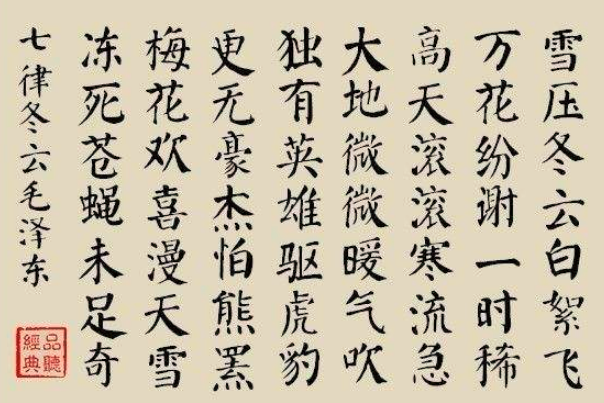 雪压冬云白絮飞
万花纷谢一时稀
高天滚滚寒流急
大地微微暖气吹
独有英雄驱虎豹
更无豪杰怕熊罴
梅花欢喜漫天雪
冻死苍蝇未足奇
七律冬云毛泽东
品聽
經典